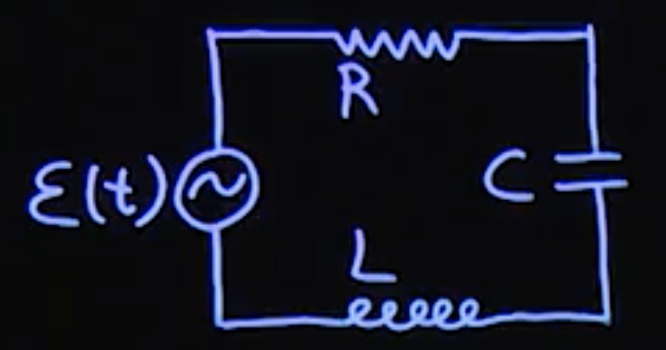 R
ℰ(t)
C
L